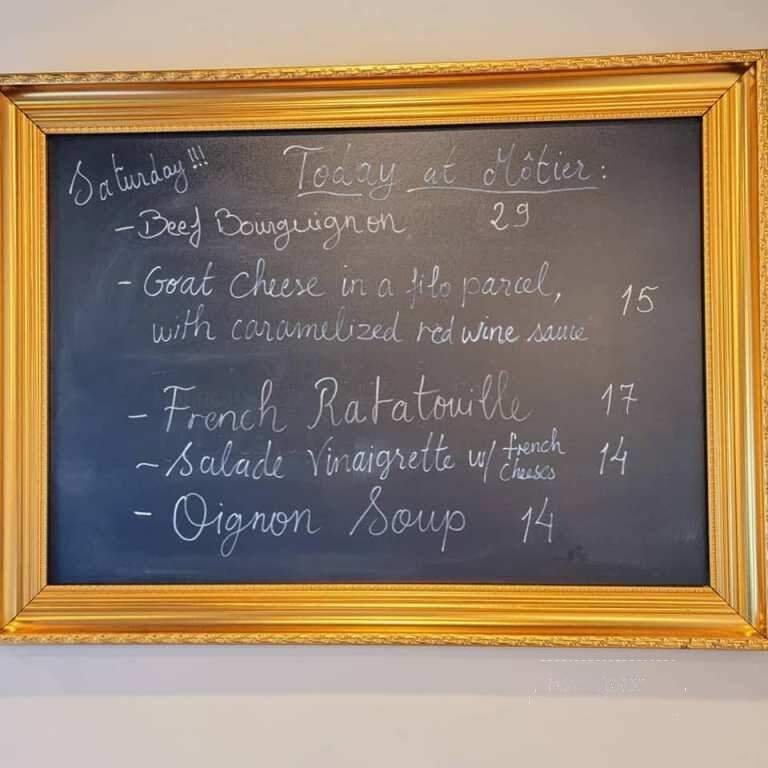 Saturday!!! Today at Môtier:
- Beef Bourguignon 29
- Goat cheese in a filo parcel, 15
with caramelized red wine sauce
- French Ratatouille 17
- Salade Vinaigrette w/ french cheeses 14
- Oignon Soup 14